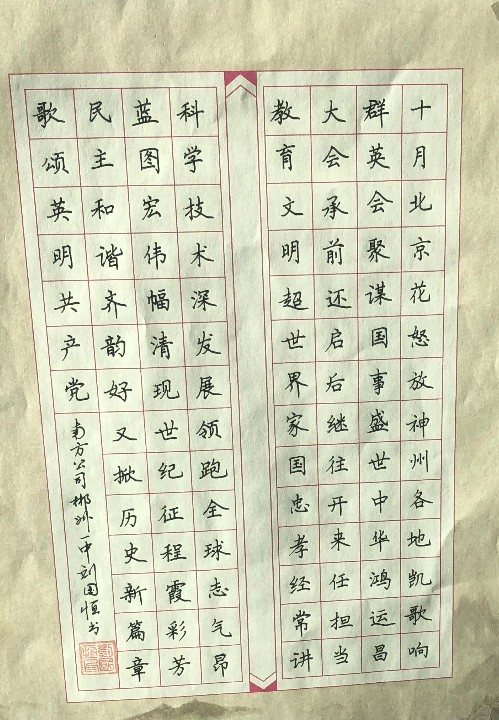 十月北京花怒放神州各地凯歌响
群英会聚谋国事盛世中华鸿运昌
大会承前还启后继往开来任担当
教育文明超世界家国忠孝经常讲
科学技术深发展领跑全球志气昂
蓝图宏伟幅清现世纪征程霞彩芳
民主和谐齐韵好又掀历史新篇章
歌颂英明共产党
南方公司郴州一中刘国恒书